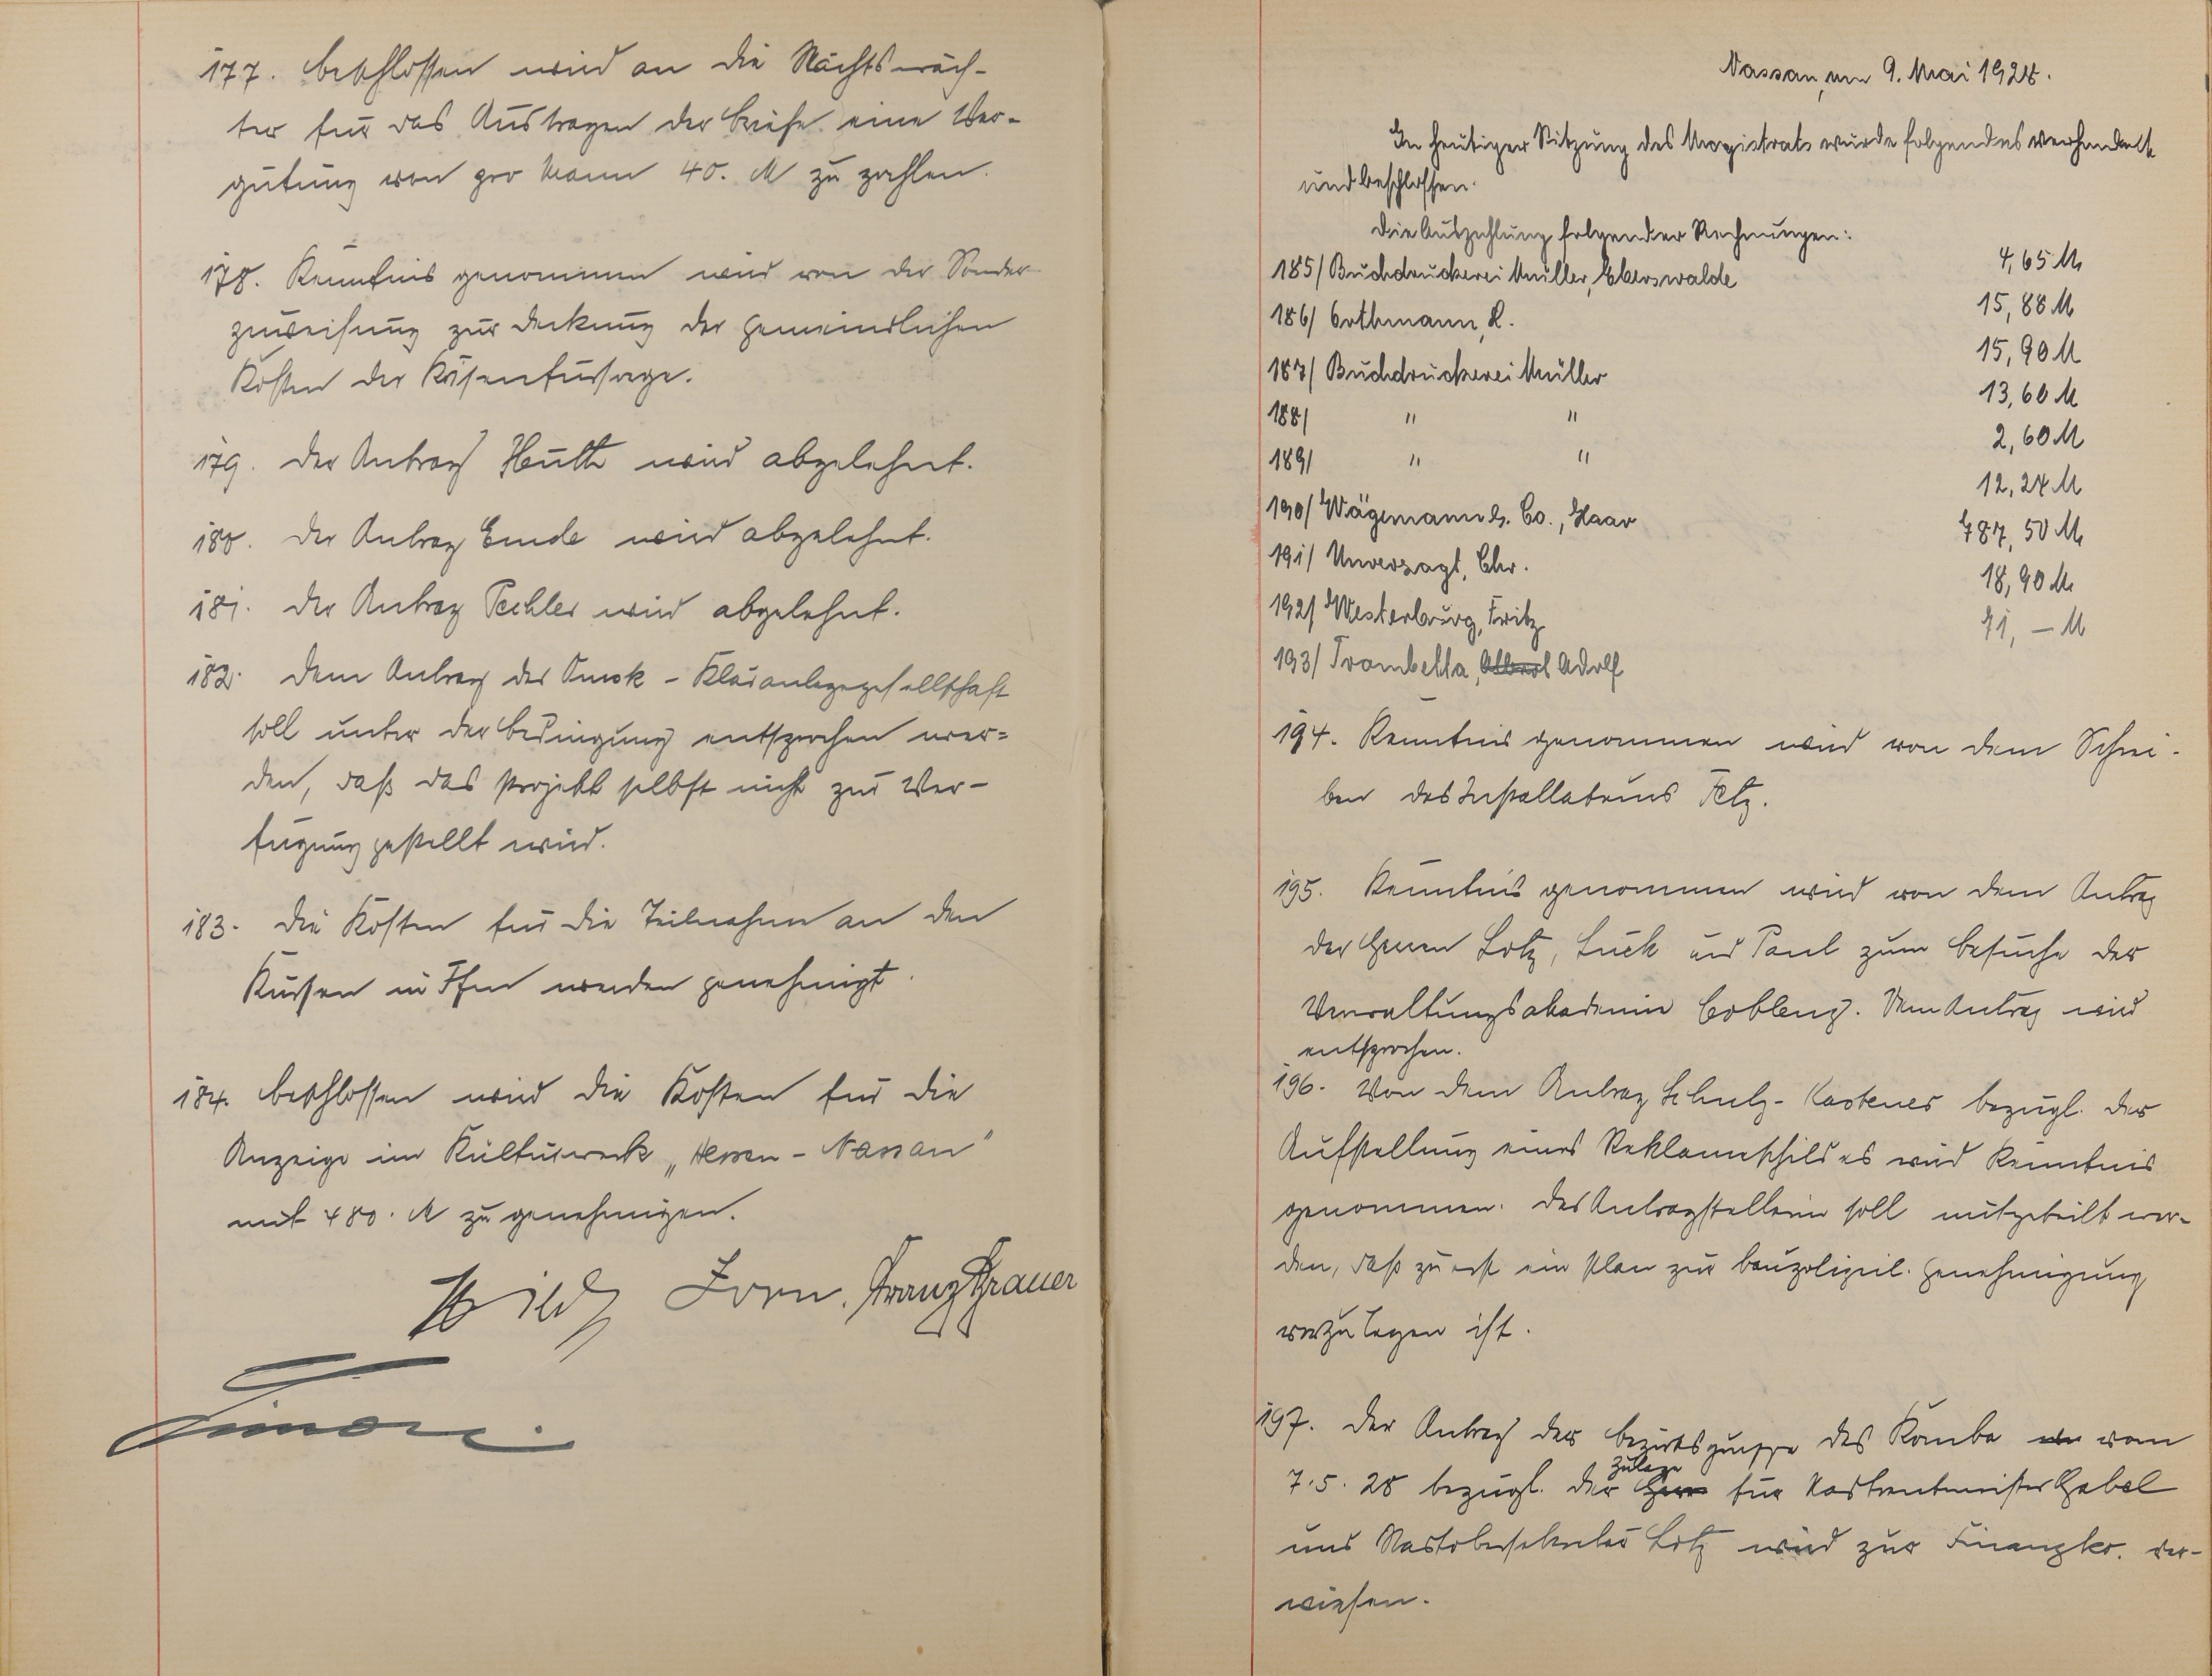 177. beschlossen wird an die Nachtswäch-
ter für das Austragen der Briefe eine Ver-
gütung von pro Mann 40. M zu zahlen.
178. Kenntnis genommen wird von der Sonder-
zuweisung zur Deckung der gemeindlichen
Kosten der Krisenfürsorge.
179. Der Antrag Huth wird abgelehnt.
180. Der Antrag Emde wird abgelehnt.
181. Der Antrag Pechler wird abgelehnt.
182. Dem Antrag der Omsk-Kläranlagegesellschaft
soll unter der Bedingung entsprochen wer-
den, daß das Projekt selbst nicht zur Ver-
fügung gestellt wird.
183. Die Kosten für die Teilnahme an den
Kursen in Ffm werden genehmigt.
184. beschlossen wird die Kosten für die
Anzeige im Kulturwerk „Hessen-Nassau"
mit 480. M zu genehmigen.
Zorn. Franz Grauer
Nassau, am 9. Mai 1928.
In heutiger Sitzung des Magistrats wurde folgendes verhandelt
und beschlossen.
Die Auszahlung folgender Rechnungen:
185/ Buchdruckerei Müller, Eberswalde 4,65 M
186/ Orthmann, L. 15,88 M
187/ Buchdruckerei Müller 15,90 M
188/ " " 13,60 M
189/ " " 2,60 M
190/ Wägemann & Co., Haar 12,24 M
191/ Unverzagt, Chr. 787,50 M
192/ Westerburg, Fritz 18,90 M
193/ Trombetta, Albert Adolf 71,— M
194. Kenntnis genommen wird von dem Schrei-
ben des Installateurs Fetz.
195. Kenntnis genommen wird von dem Antrag
der Herren Lotz, Luck und Paul zum Besuche der
Verwaltungsakademie Coblenz. Dem Antrag wird
entsprochen.
196. Von dem Antrag Schulz-Kastenes bezügl. der
Aufstellung eines Reklameschildes wird Kenntnis
genommen. Der Antragstellerin soll mitgeteilt wer-
den, daß zuerst ein Plan zur baupolizeil. Genehmigung
vorzulegen ist.
197. Der Antrag der Bezirksgruppe des Komba vom
7.5.28 bezügl. der Zulage für Stadtrentmeister Gabel
und Stadtobersekretär Lotz wird zur Finanzko. ver-
wiesen.